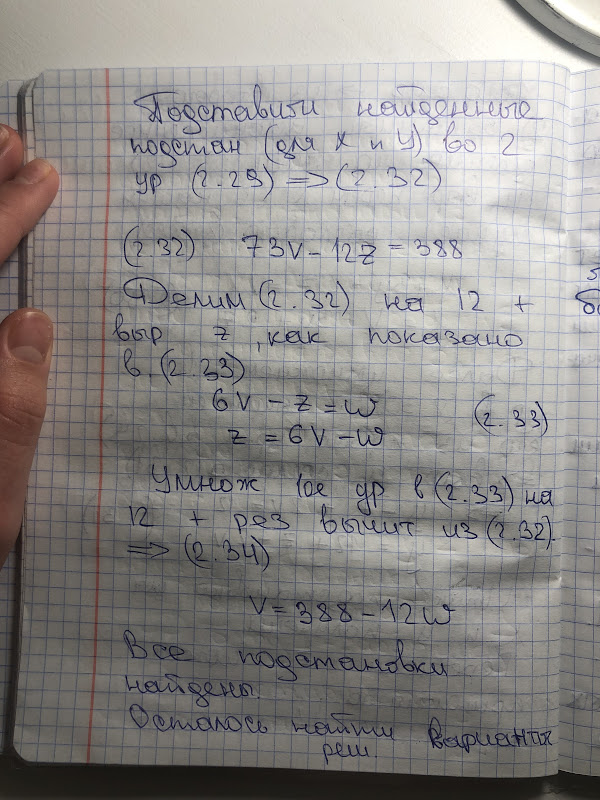 Подставим найденные
подстан (для x и y) во 2
ур (2.29) => (2.32)
(2.32) 73V - 12z = 388
Делим (2.32) на 12 +
выр z, как показано
в (2.33)
6V - z = w
(2.33)
z = 6V - w
Умнож 1ое ур в (2.33) на
12 + рез вычит из (2.32).
=> (2.34)
V = 388 - 12w
Все подстановки
найдены.
Осталось найти варианты
реш